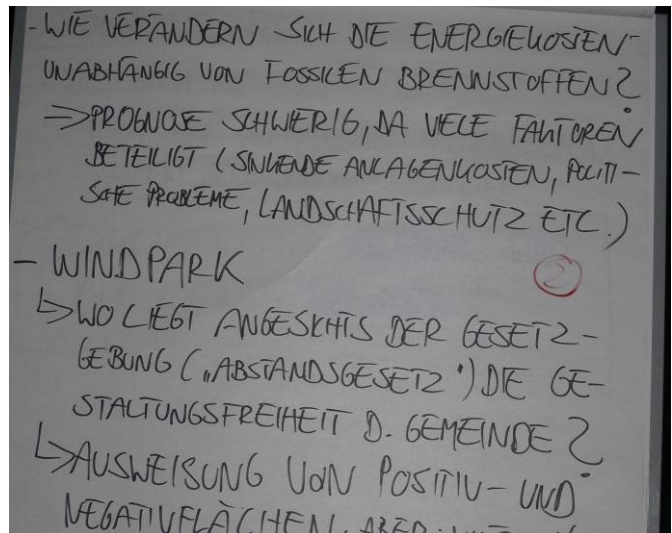 - WIE VERÄNDERN SICH DIE ENERGIEKOSTEN
UNABHÄNGIG VON FOSSILEN BRENNSTOFFEN?
⇒ PROGNOSE SCHWIERIG, DA VIELE FAKTOREN
BETEILIGT (SINKENDE ANLAGENKOSTEN, POLITI-
SCHE PROBLEME, LANDSCHAFTSSCHUTZ ETC.)
- WINDPARK
②
↳ WO LIEGT ANGESICHTS DER GESETZ-
GEBUNG („ABSTANDSGESETZ") DIE GE-
STALTUNGSFREIHEIT D. GEMEINDE?
↳ AUSWEISUNG VON POSITIV- UND
NEGATIVFLÄCHEN, ABER: